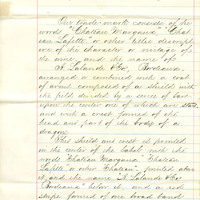 Our trade-mark consists of the
words "Chateau Margaux," "Chat-
eau Lafitte" or other titles descrip-
tive of the character or vintage of
the wine and the name of
A. Lalande & Co., Bordeaux
arranged or combined with a coat
of arms composed of a shield with
the field divided by a series of bars
upon the center one of which are stars
and with a crest formed of the
head and part of the body of a
dragon.
This shield and crest is printed
in the center of the label with the
words "Chateau Margaux" "Chateau
Lafitte" or other "Chateau" printed above
it and the name "A. Lalande & Co.
Bordeaux" below it, and a red
stripe formed of one broad band